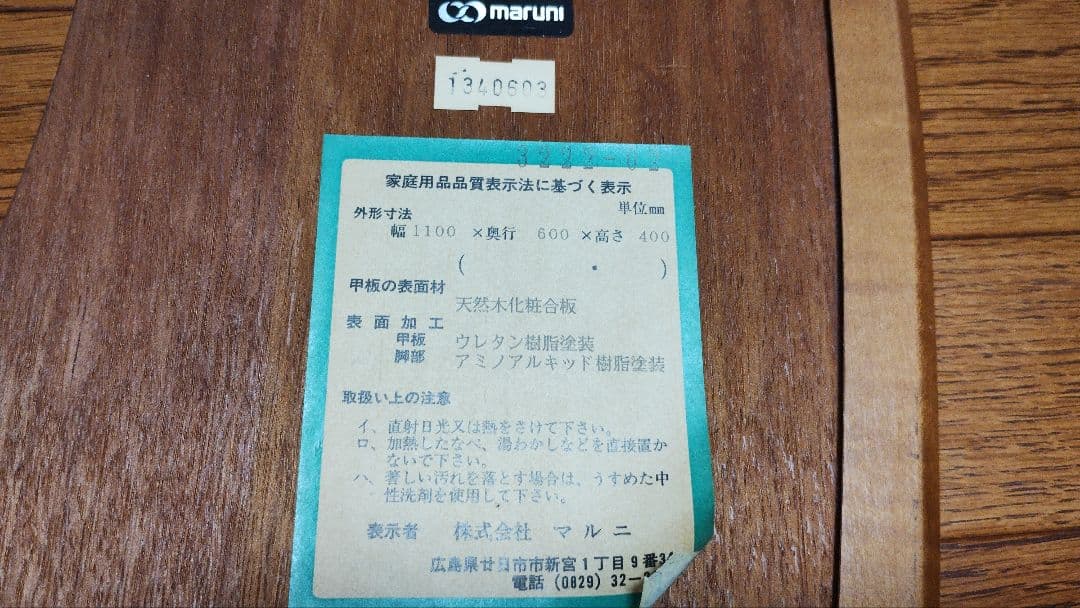 maruni
1340603
3222-02
家庭用品品質表示法に基づく表示
単位㎜
外形寸法
幅1100 ×奥行 600 ×高さ 400
( ・ )
甲板の表面材
天然木化粧合板
表面加工
甲板 ウレタン樹脂塗装
脚部 アミノアルキッド樹脂塗装
取扱い上の注意
イ、直射日光又は熱をさけて下さい。
ロ、加熱したなべ、湯わかしなどを直接置か
ないで下さい。
ハ、著しい汚れを落とす場合は、うすめた中
性洗剤を使用して下さい。
表示者 株式会社 マルニ
広島県廿日市市新宮1丁目9番
電話 (0829) 32-